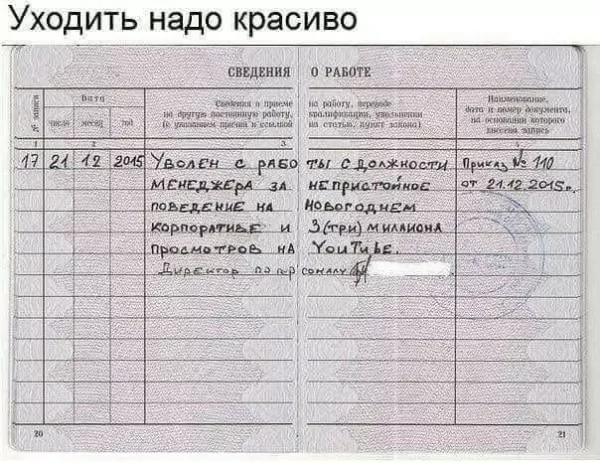 Уходить надо красиво
СВЕДЕНИЯ О РАБОТЕ
№ записи
Дата
Сведения о приеме на работу, переводе
Наименование,
на другую постоянную работу, квалификации, увольнении
дата и номер документа,
(с указанием причин и ссылкой на статью, пункт закона)
на основании которого
число месяц год
внесена запись
1 2 3 4
17 21 12 2015 УВОЛЕН С РАБОТЫ С ДОЛЖНОСТИ Приказ № 110
МЕНЕДЖЕРА ЗА НЕПРИСТОЙНОЕ от 21.12.2015г.
ПОВЕДЕНИЕ НА НОВОГОДНЕМ
КОРПОРАТИВЕ И 3 (ТРИ) МИЛЛИОНА
ПРОСМОТРОВ НА YouTuBE.
Директор по персоналу
20 21